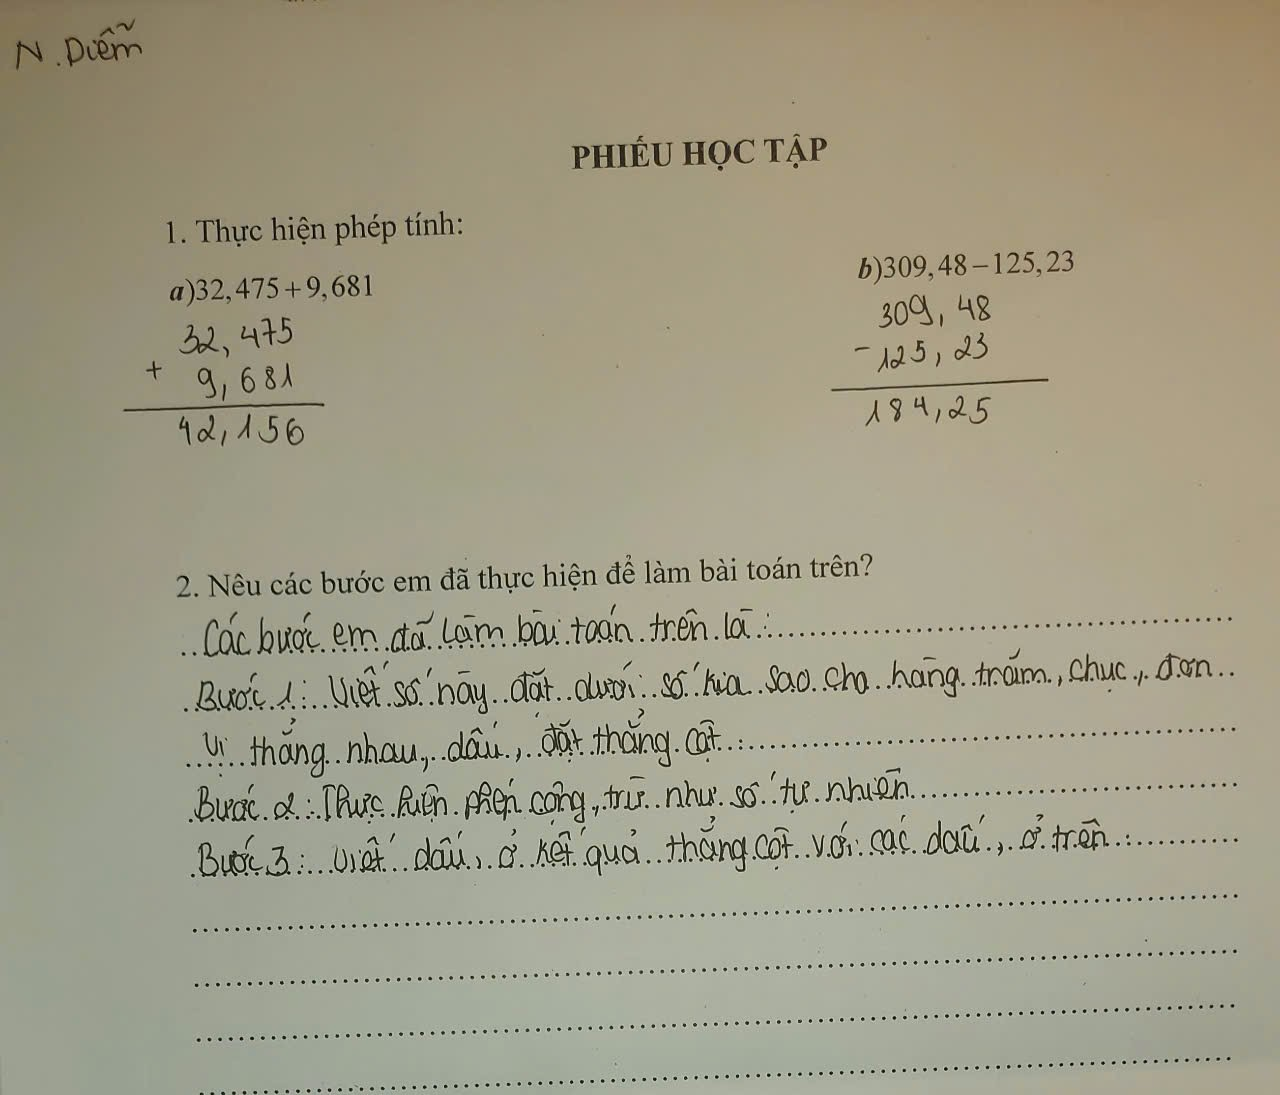 N. Diễm
PHIẾU HỌC TẬP
1. Thực hiện phép tính:
a)32,475+9,681
b)309,48−125,23
32,475
+ 9,681
42,156
309,48
- 125,23
184,25
2. Nêu các bước em đã thực hiện để làm bài toán trên?
Các bước em đã làm bài toán trên là :
Bước 1 : Viết số này đặt dưới số kia sao cho hàng trăm, chục, đơn
vị thẳng nhau, dấu , đặt thẳng cột :
Bước 2 : Thực hiện phép cộng, trừ như số tự nhiên
Bước 3 : viết dấu , ở kết quả thẳng cột với các dấu , ở trên :